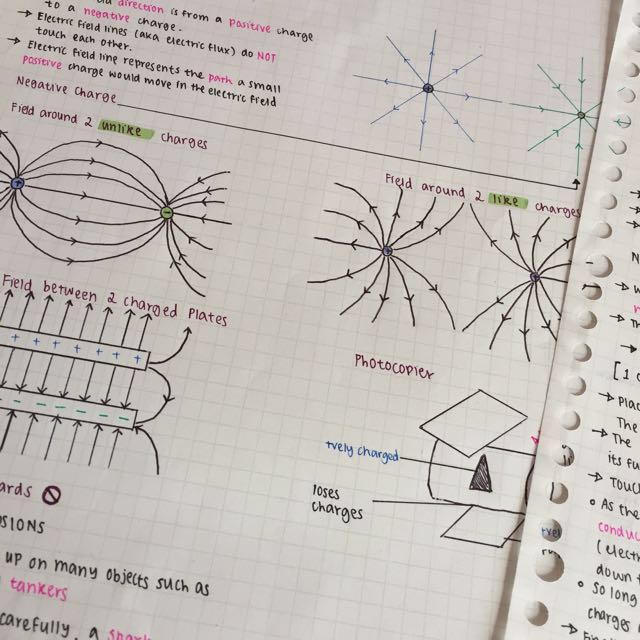 direction is from a positive charge
to a negative charge.
→ Electric field lines (aka electric flux) do NOT
touch each other.
→ Electric field line represents the path a small
positive charge would move in the electric field
Negative Charge
Field around 2 unlike charges
+
−
Field around 2 like charges
+
+
Field between 2 charged Plates
+ + + + + +
− − − − − −
Photocopier
+vely charged
loses
charges
up on many objects such as
tankers
carefully, a
→
→
N
→ W
→
[1
→ Plac
The
→ The
its fu
→ Touc
• As the
conduc
(elect
down
• so long
charges